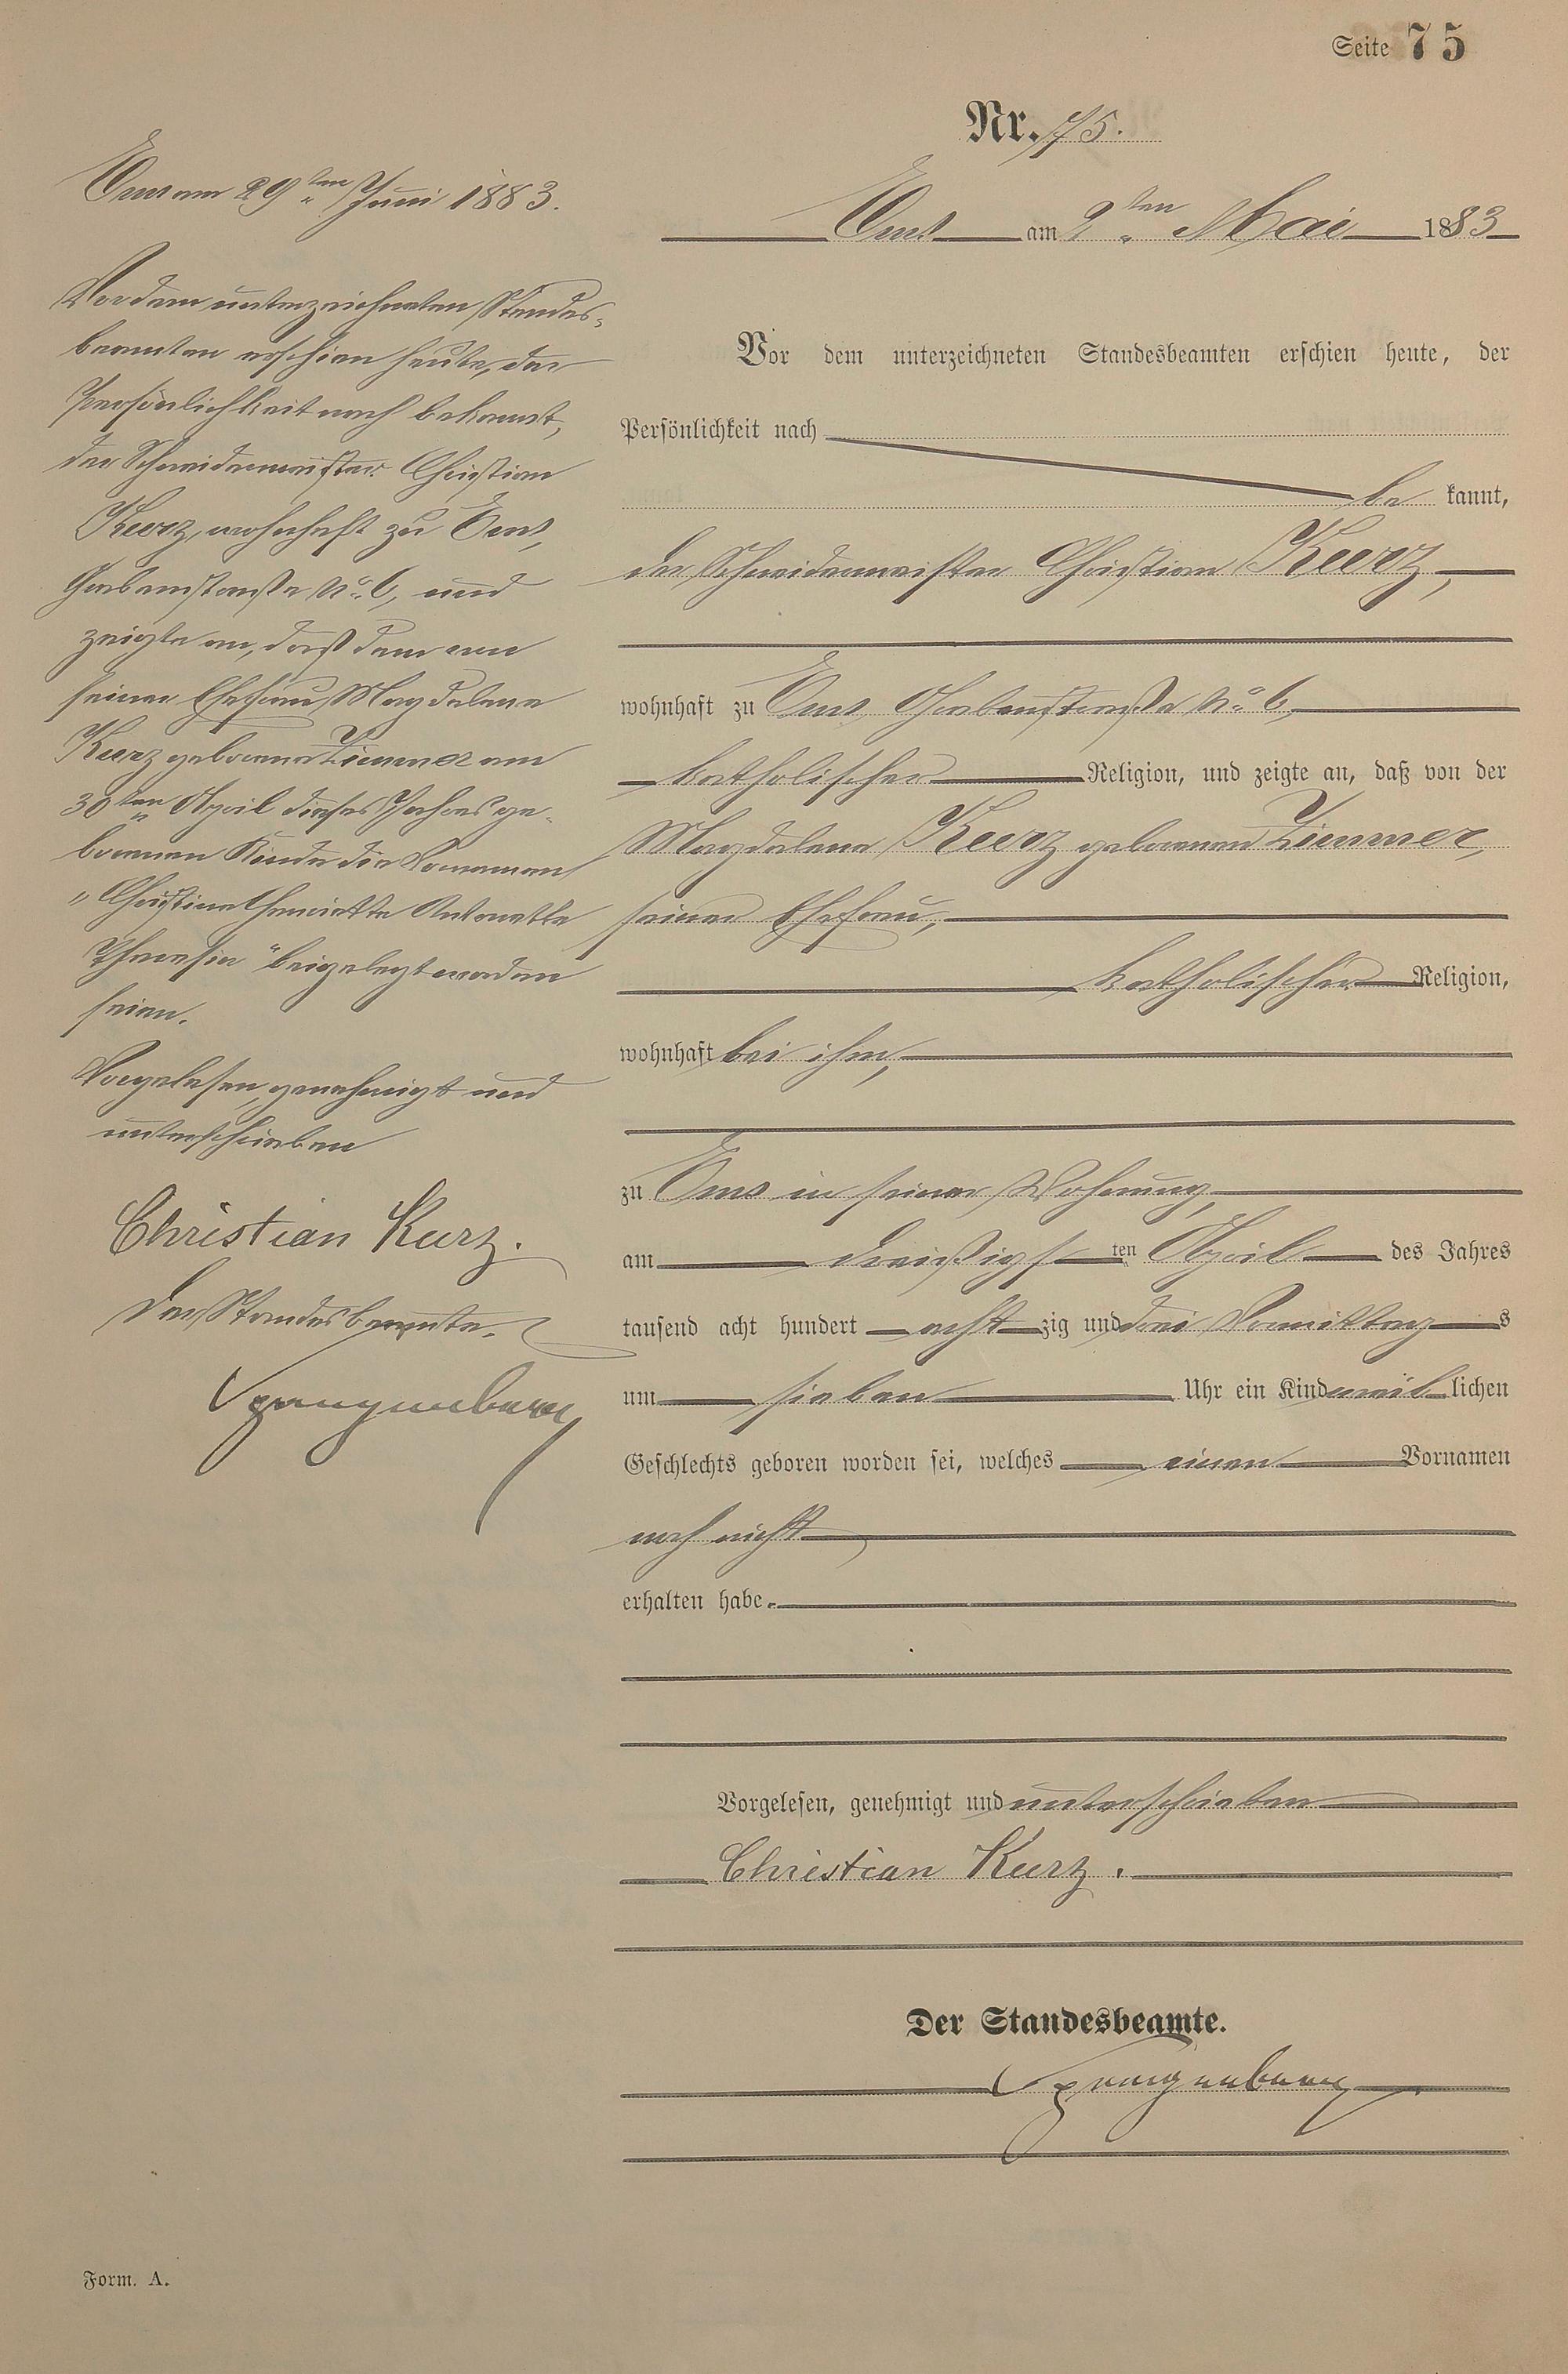 Seite 75
Nr. 75.
Ems am 2ten Mai 1883
Vor dem unterzeichneten Standesbeamten erschien heute, der
Persönlichkeit nach
be kannt,
der Schneidermeister Christian Kurz,
wohnhaft zu Ems, Grabenstraße No. 6,
katholischer Religion, und zeigte an, daß von der
Magdalena Kurz geborenen Zimmer,
seiner Ehefrau,
katholischer Religion,
wohnhaft bei ihm,
zu Ems in seiner Wohnung,
am dreißigsten April des Jahres
tausend acht hundert acht zig und drei Vormittags
um sieben Uhr ein Kind weiblichen
Geschlechts geboren worden sei, welches einen Vornamen
noch nicht
erhalten habe.
Vorgelesen, genehmigt und unterschrieben
Christian Kurz.
Der Standesbeamte.
Ems am 29ten Juni 1883.
Vor dem unterzeichneten Standes-
beamten erschien heute, der
Persönlichkeit nach bekannt,
der Schneidermeister Christian
Kurz, wohnhaft zu Ems,
Grabenstraße No. 6, und
zeigte an, daß dem von
seiner Ehefrau Magdalena
Kurz geborene Zimmer am
30ten April dieses Jahres ge-
borenen Kinde die Vornamen
"Christine Henriette Antonette
Theresia" beigelegt worden
seien.
Vorgelesen, genehmigt und
unterschrieben
Christian Kurz.
Der Standesbeamte.
Form. A.